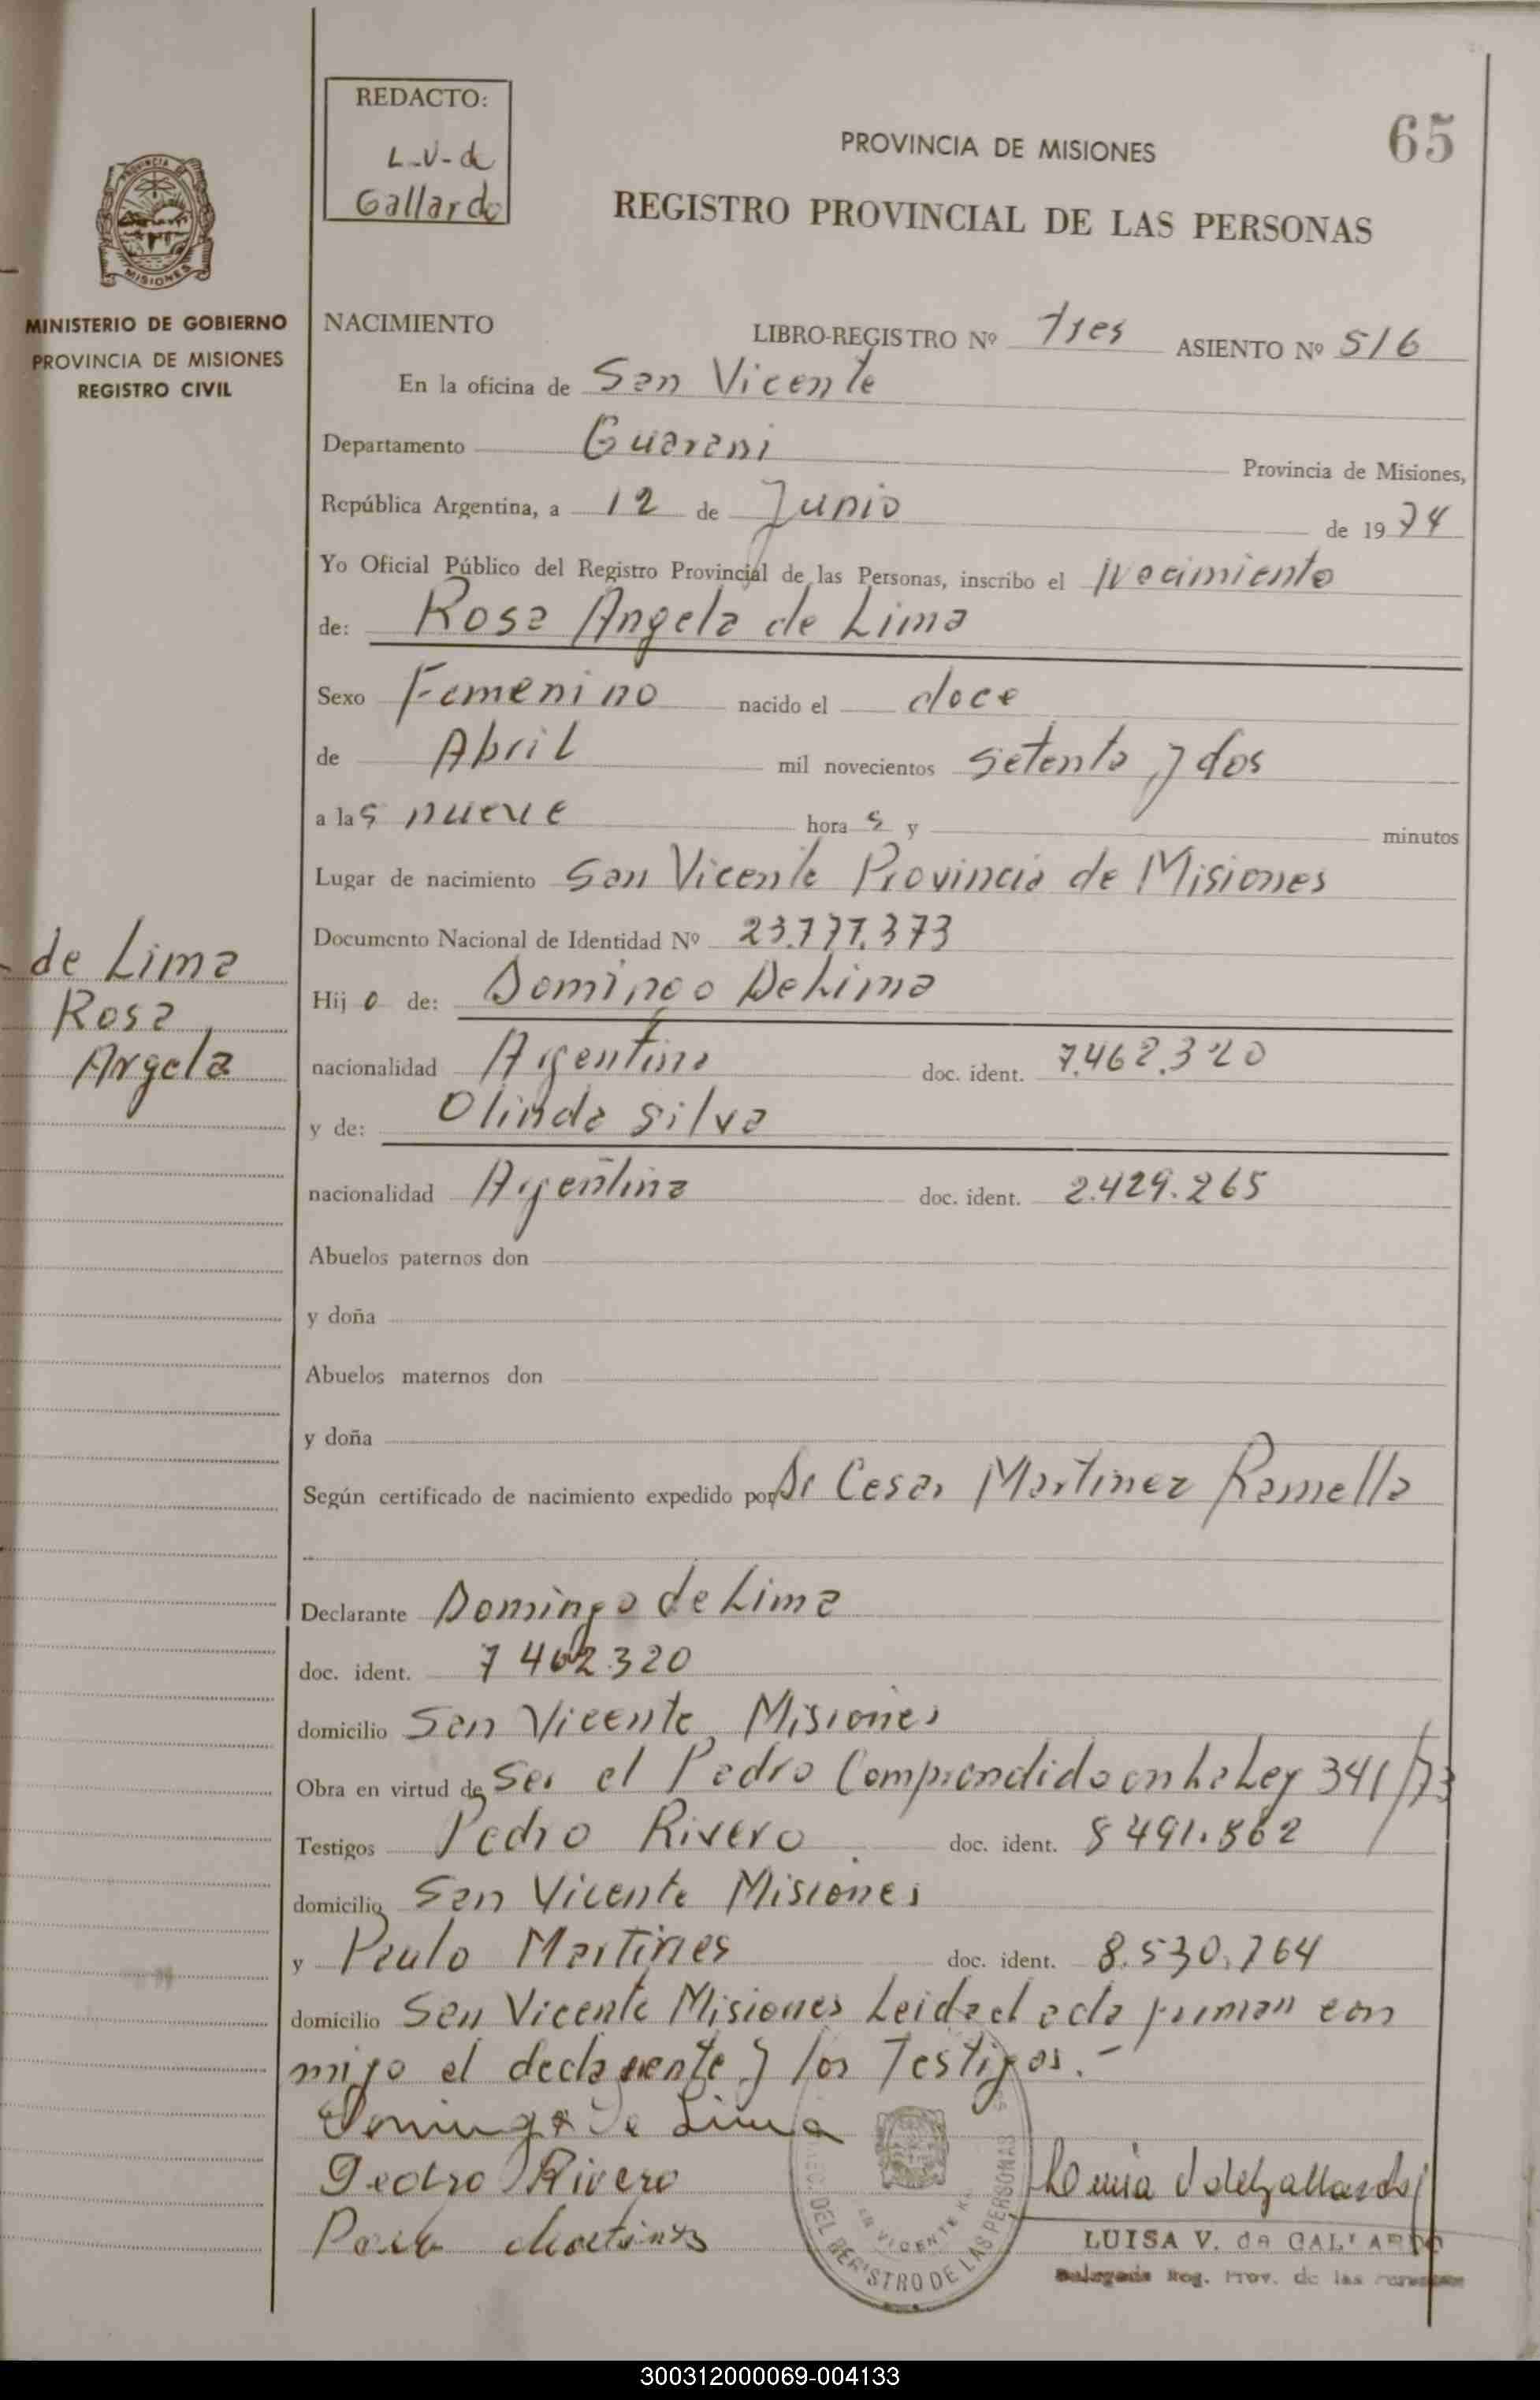 REDACTO:
L-V-de
Gallardo
65
PROVINCIA DE MISIONES
REGISTRO PROVINCIAL DE LAS PERSONAS
PROVINCIA DE
MISIONES
MINISTERIO DE GOBIERNO
PROVINCIA DE MISIONES
REGISTRO CIVIL
NACIMIENTO LIBRO-REGISTRO Nº tres ASIENTO Nº 516
En la oficina de San Vicente
Departamento Guarani Provincia de Misiones,
República Argentina, a 12 de Junio de 1974
Yo Oficial Público del Registro Provincial de las Personas, inscribo el Nacimiento
de: Rosa Angela de Lima
Sexo Femenino nacido el doce
de Abril mil novecientos setenta y dos
a las nueve horas y minutos
Lugar de nacimiento San Vicente Provincia de Misiones
Documento Nacional de Identidad Nº 23.777.373
de Lima
Rosa
Angela
Hijo de: Domingo DeLima
nacionalidad Argentina doc. ident. 7.462.320
y de: Olinda Silva
nacionalidad Argentina doc. ident. 2.429.265
Abuelos paternos don
y doña
Abuelos maternos don
y doña
Según certificado de nacimiento expedido por Dr Cesar Martinez Ramella
Declarante Domingo de Lima
doc. ident. 7 462.320
domicilio San Vicente Misiones
Obra en virtud de Ser el Padre Comprendido en La Ley 341/73
Testigos Pedro Rivero doc. ident. 8491.562
domicilio San Vicente Misiones
y Paulo Martines doc. ident. 8.530.764
domicilio San Vicente Misiones Leida el acta firman con
migo el declarente y los Testigos.-
Domingo De Lima
Pedro Rivero
Paulo Martines
DEL REGISTRO DE LAS PERSONAS
VICENTE
LUISA V. de GALLARDO
Delegada Reg. Prov. de las Personas
300312000069-004133